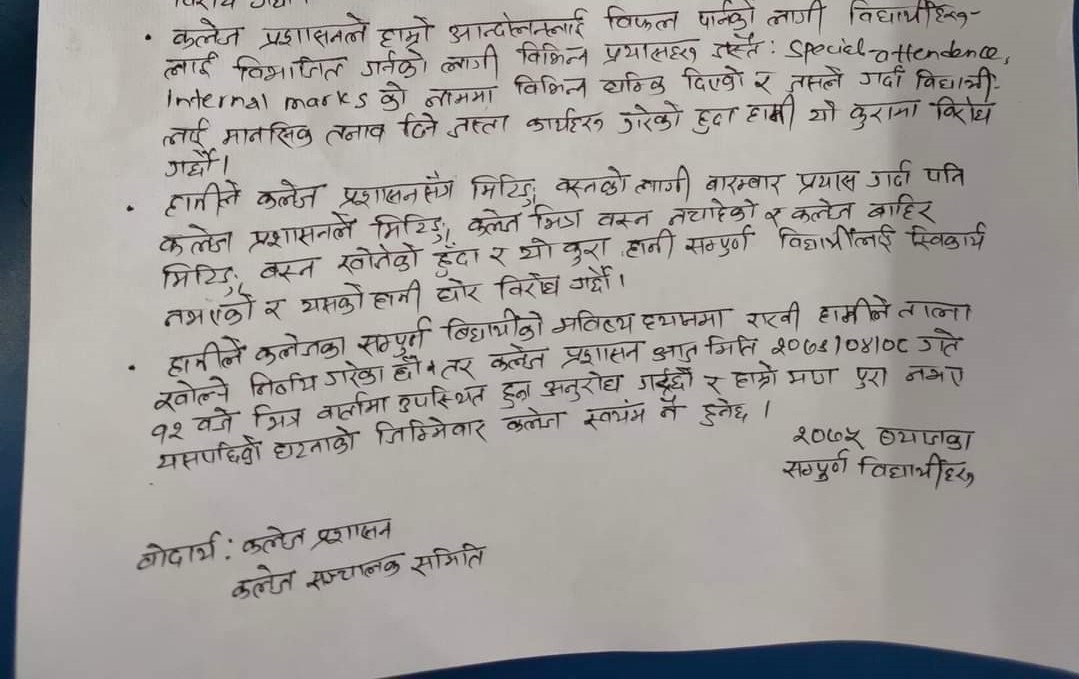 • कलेज प्रशासनले हाम्रो आन्दोलनलाई विफल पार्नको लागी विद्यार्थीहरु-
लाई विभाजित गर्नको लागी विभिन्न प्रयासहरु जस्तै: Special-attendence,
Internal marks को नाममा विभिन्न धम्कि दिएको र त्रसले गर्दा विद्यार्थी-
लाई मानसिक तनाव दिने जस्ता कार्यहरु गरेको हुदा हामी यो कुरामा विरोध
गर्छौ।
• हामीले कलेज प्रशासनसँग मिटिङ्ग वस्नको लागी वारम्वार प्रयास गर्दा पनि
कलेज प्रशासनले मिटिङ्ग कलेज भित्र वस्न नचाहेको र कलेज बाहिर
मिटिङ्ग वस्न खोजेको हुँदा र यो कुरा हामी सम्पुर्ण विद्यार्थीलाई स्विकार्य
नभएको र यसको हामी घोर विरोध गर्छौ।
• हामीले कलेजका सम्पुर्ण विद्यार्थीको भविष्य ध्यानमा राखी हामीले ताला
खोल्ने निर्णय गरेका छौ। तर कलेज प्रशासन आज मिति २०७९/०४/०८ गते
१२ वजे भित्र वार्तामा उपस्थित हुन अनुरोध गर्दछौ र हाम्रो माग पुरा नभए
यसपछिको घटनाको जिम्मेवार कलेज स्वयंम नै हुनेछ ।
२०७५ ब्याजका
सम्पुर्ण विद्यार्थीहरु
बोदार्थ : कलेज प्रशासन
कलेज सञ्चालक समिति